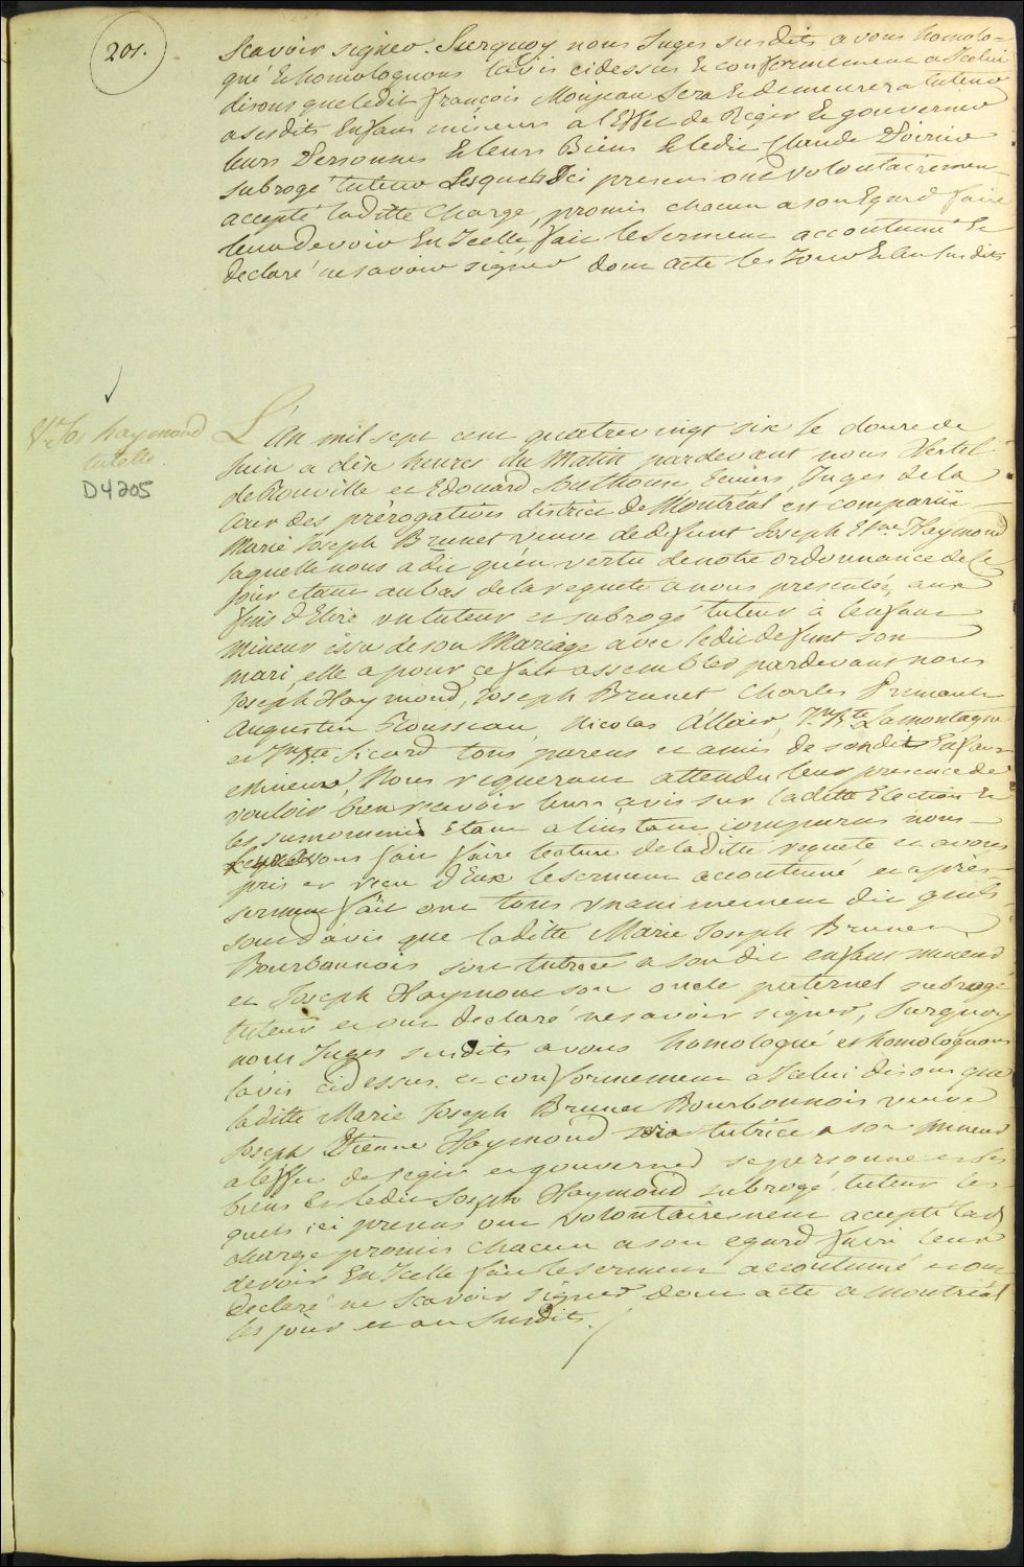 201.
Scavoir signer. Surquoy nous Juges susdits avons homolo-
gué & homologuons lavis cidessus & conformement a Icelui
disons queledit françois Monjeau Sera & demeurera tuteur
asesdits Enfans mineurs a l'Effet de Regir & gouverner
leurs Personnes & leurs Biens & ledit Claude Poirier
subrogé tuteur Lesquels Ici presens ont volontairemen
accepté laditte Charge, promis chacun a son Egard faire
leur devoir En Icelle, fait le Serment accoutumé &
declaré ne savoir signer dont acte les Jour & an susdits
Ve Jos haymond
tutelle.
D4205
L'An mil sept cent quatrevingt six le douze de
Juin a dix heures du Matin pardevant nous Hertel
de Rouville et Edouard Southouse Ecuiers Juges de la
Cour des prérogatives district de Montréal est comparüe
Marie Joseph Brunet veuve de defunt Joseph Etne Haymond
laquelle nous a dit qu'en vertu de notre ordonnance de ce
jour etant au bas de la requete a nous presentée, aux
fins d'Elire un tuteur et subrogé tuteur à lenfant
mineur issu de son Mariage avec ledit defunt son
mari, elle a pour ce fait assembler pardevant nous
Joseph Haymond, Joseph Brunet Charles
Augustin Rousseau, Nicolas Allaire, Jn Bte Lamontagne
et Jn Bte Sicard tous parens et amis de sondit Enfant
Mineur, Nous requerant attendu leur presence de
vouloir bien recevoir leurs avis sur laditte Election &
les susnommés Etant a linstant comparus nous
avons fait faire lecture de laditte requete et avons
pris et recu d'Eux le serment accoutumé et après
serment fait ont tous unanimement dit quils
sont d'avis que laditte Marie Joseph Brunet
Bourbonnois soit tutrice a son dit enfant mineur
et Joseph Haymond son oncle paternel subrogé
tuteur et ont declaré ne savoir signer, Surquoy
nous Juges susdits avons homologué et homologuons
lavis cidessus et conformement a Icelui disons que
laditte Marie Joseph Brunet Bourbonnois veuve
Joseph Etienne Haymond sera tutrice a son mineur
a leffet de regir et gouverner sa personne et ses
biens & ledit Joseph Haymond subrogé tuteur les
quels ici presens ont volontairement accepté lad
charge promis chacun a son egard faire leur
devoir En Icelle fait le serment accoutumé et ont
declaré ne Scavoir signer dont acte a Montréal
les jour et an susdits.